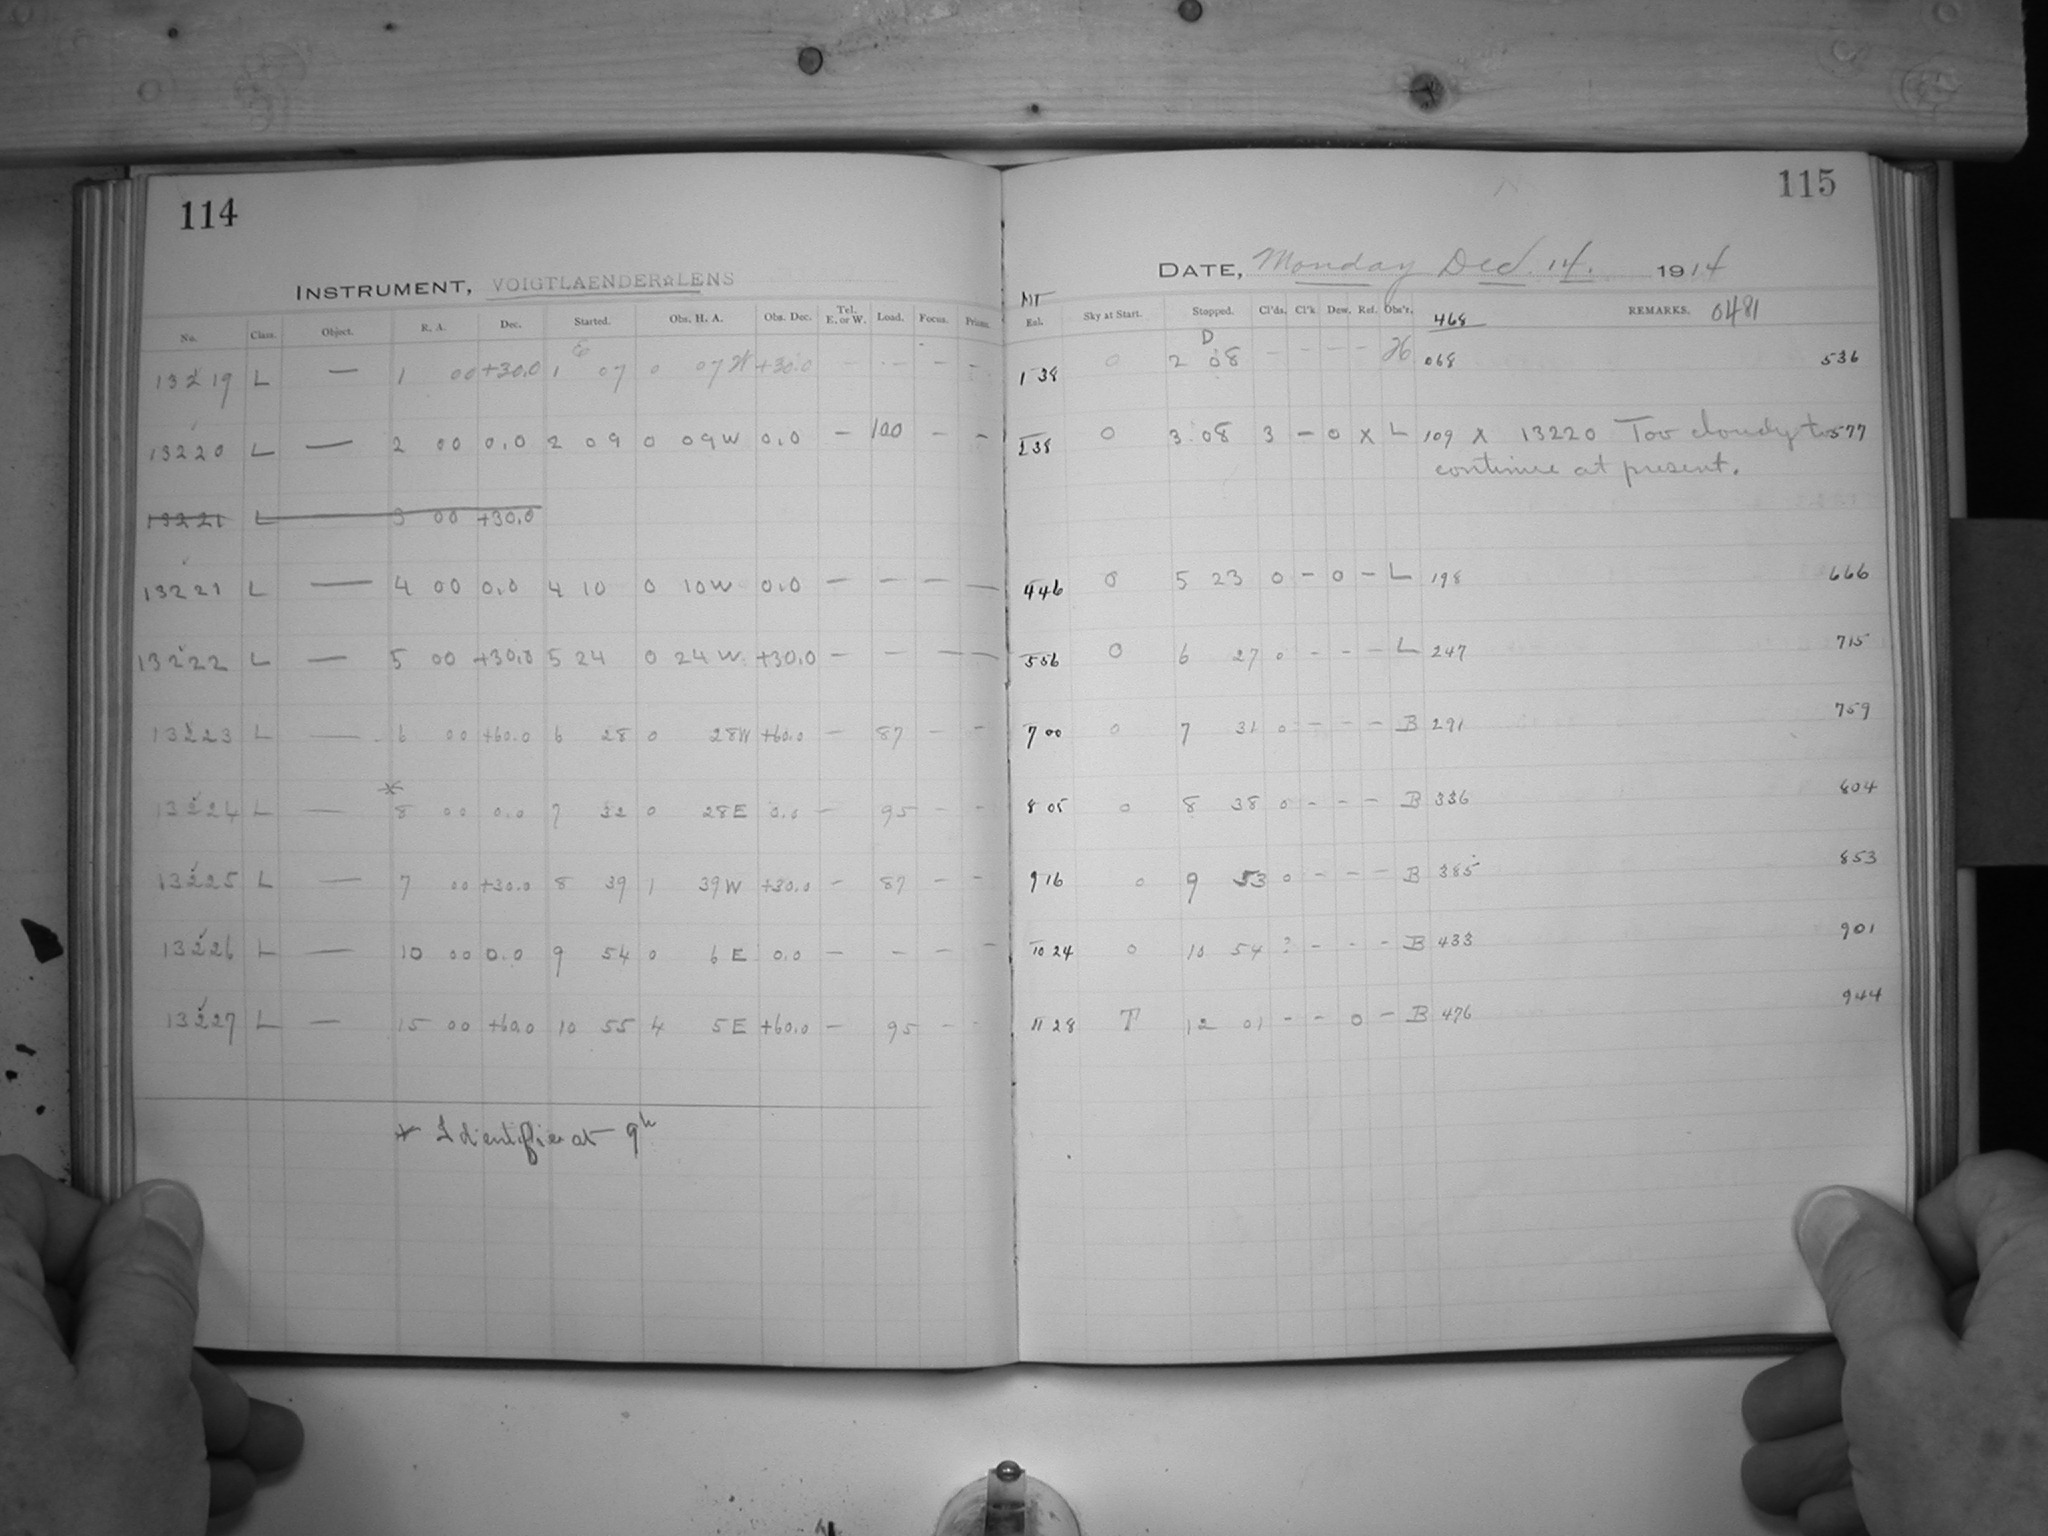 114
INSTRUMENT, VOIGTLAENDER LENS
No. Class. Object. R. A. Dec. Started. Obs. H. A. Obs. Dec. Tel. E. or W. Load. Focus. Prisms.
E
13219 L — 1 00 +30.0 1 07 0 07 W +30.0 — — — —
13220 L — 2 00 0.0 2 09 0 09 W 0.0 — 100 — —
13221 L 3 00 +30.0
13221 L — 4 00 0.0 4 10 0 10 W 0.0 — — — —
13222 L — 5 00 +30.0 5 24 0 24 W +30.0 — — — —
13223 L — 6 00 +60.0 6 28 0 28 W +60.0 — 87 — —
*
13224 L — 8 00 0.0 7 32 0 28 E 0.0 — 95 — -
13225 L — 7 00 +30.0 8 39 1 39 W +30.0 — 87 — —
13226 L — 10 00 0.0 9 54 0 6 E 0.0 — — — —
13227 L — 15 00 +60.0 10 55 4 5 E +60.0 — 95 - -
* Identifier at 9h
115
DATE, Monday Dec. 14. 1914
MT
Eul. Sky at Start. Stopped. Cl'ds. Cl'k Dew. Ref. Obs'r. 468 REMARKS. 0481
D
1 38 0 2 08 - - - - H 068 536
2 38 0 3 08 3 - 0 X L 109 X 13220 Too cloudy to 577
continue at present.
4 46 0 5 23 0 - 0 - L 198 666
5 56 0 6 27 0 - - - L 247 715
7 00 0 7 31 0 - - - B 291 759
8 05 0 8 38 0 - - - B 336 804
9 16 0 9 53 0 - - - B 385 853
10 24 0 10 54 ? - - - B 433 901
11 28 T 12 01 - - 0 - B 476 944